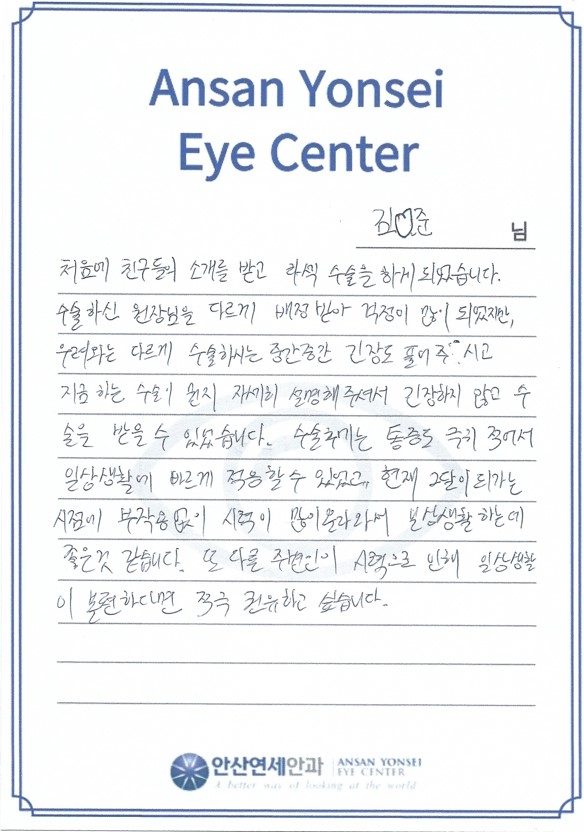 Ansan Yonsei
Eye Center
김♡준 님
처음에 친구들의 소개를 받고 라섹 수술을 하게 되었습니다.
수술하신 원장님을 다르게 배정받아 걱정이 많이 되었지만,
우려와는 다르게 수술하시는 중간중간 긴장도 풀어주시고
지금 하는 수술이 뭔지 자세히 설명해주셔서 긴장하지 않고 수
술을 받을 수 있었습니다. 수술후기는 통증도 극히 적어서
일상생활에 빠르게 적응할 수 있었고, 현재 2달이 되가는
시점에 부작용없이 시력이 많이올라와서 일상생활 하는데
좋은것 같습니다. 또 다른 주변인이 시력으로 인해 일상생활
이 불편하다면 적극 권유하고 싶습니다.
안산연세안과 ANSAN YONSEI
EYE CENTER
A better way of looking at the world